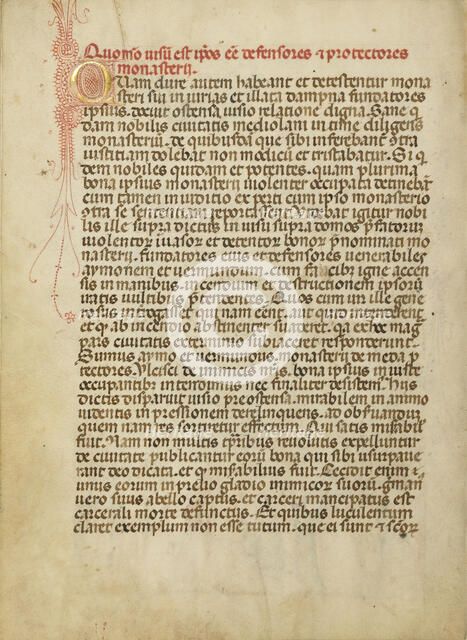 Quomodo visum est ipsos esse defensores et protectores
monasterij.
Quam dure autem habeant et detestentur mona
sterij sui iniurias et illata dampna fundatores
ipsius. docuit ostensa visio relatione digna. Sane q
dam nobilis civitatis mediolani intime diligens
monasterium. de quibusdam que sibi inferebantur
iustitiam dolebat non modicum et tristabatur. Si q
dem nobiles quidam et potentes. quam plurima
bona ipsius monasterij violenter occupata detinebant
cum tamen in iuditio experti cum ipso monasterio
se sententiam reportassent. Videbat igitur nobi
lis ille supra dictus in visu supra domos prefatorum
violentorum invasorum et detentorum bonorum prenominati mo
nasterij. fundatores eius et defensores venerabiles
aymonem et vermondum. cum facibus igne accen
sis in manibus. incendium et destructionem ipsorum
iratis vultibus pretendentes. Quos cum vir ille gene
rosus interrogasset qui nam essent. aut quid intenderent
et quod ab incendio abstinerent suaderet.
civitatis exterminio subiaceret responderunt.
Sumus aymo et vermondus. monasterij de meda pro
tectores. bona ipsius iniuste
occupantibus interdicimus nec finaliter desistemus. hijs
dictis disparuit visio preostensa. mirabilem in animo
videntis inpressionem derelinquens. ad observandum
quem nam res sortiretur effectum. Qui satis mirabilis
fuit. Nam non multis temporibus revolutis expelluntur
de civitate publicantur eorum bona qui sibi usurpave
rant deo dicata. et quod mirabilius fuit. Cecidit enim
unus eorum in prelio gladio inimicorum suorum. germanus
vero suus a bello captus. et carceri mancipatus est
carcerali morte defunctus. Et quibus luculentum
claret exemplum non esse tutum. que ei sunt et